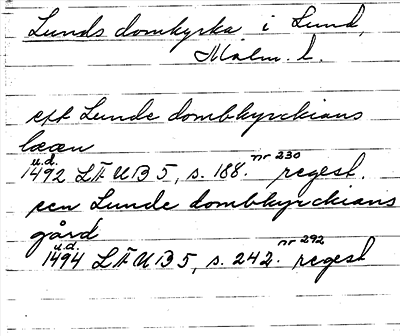 Lunds domkyrka i Lund,
Malm. l.
ett Lunde dombkyrckians
lææn
u.d.
1492 LÄUB 5, s. 188. nr 230 regest.
een Lunde dombkyrckians
gård
u.d.
1494 LÄUB 5, s. 242. nr 292 regest